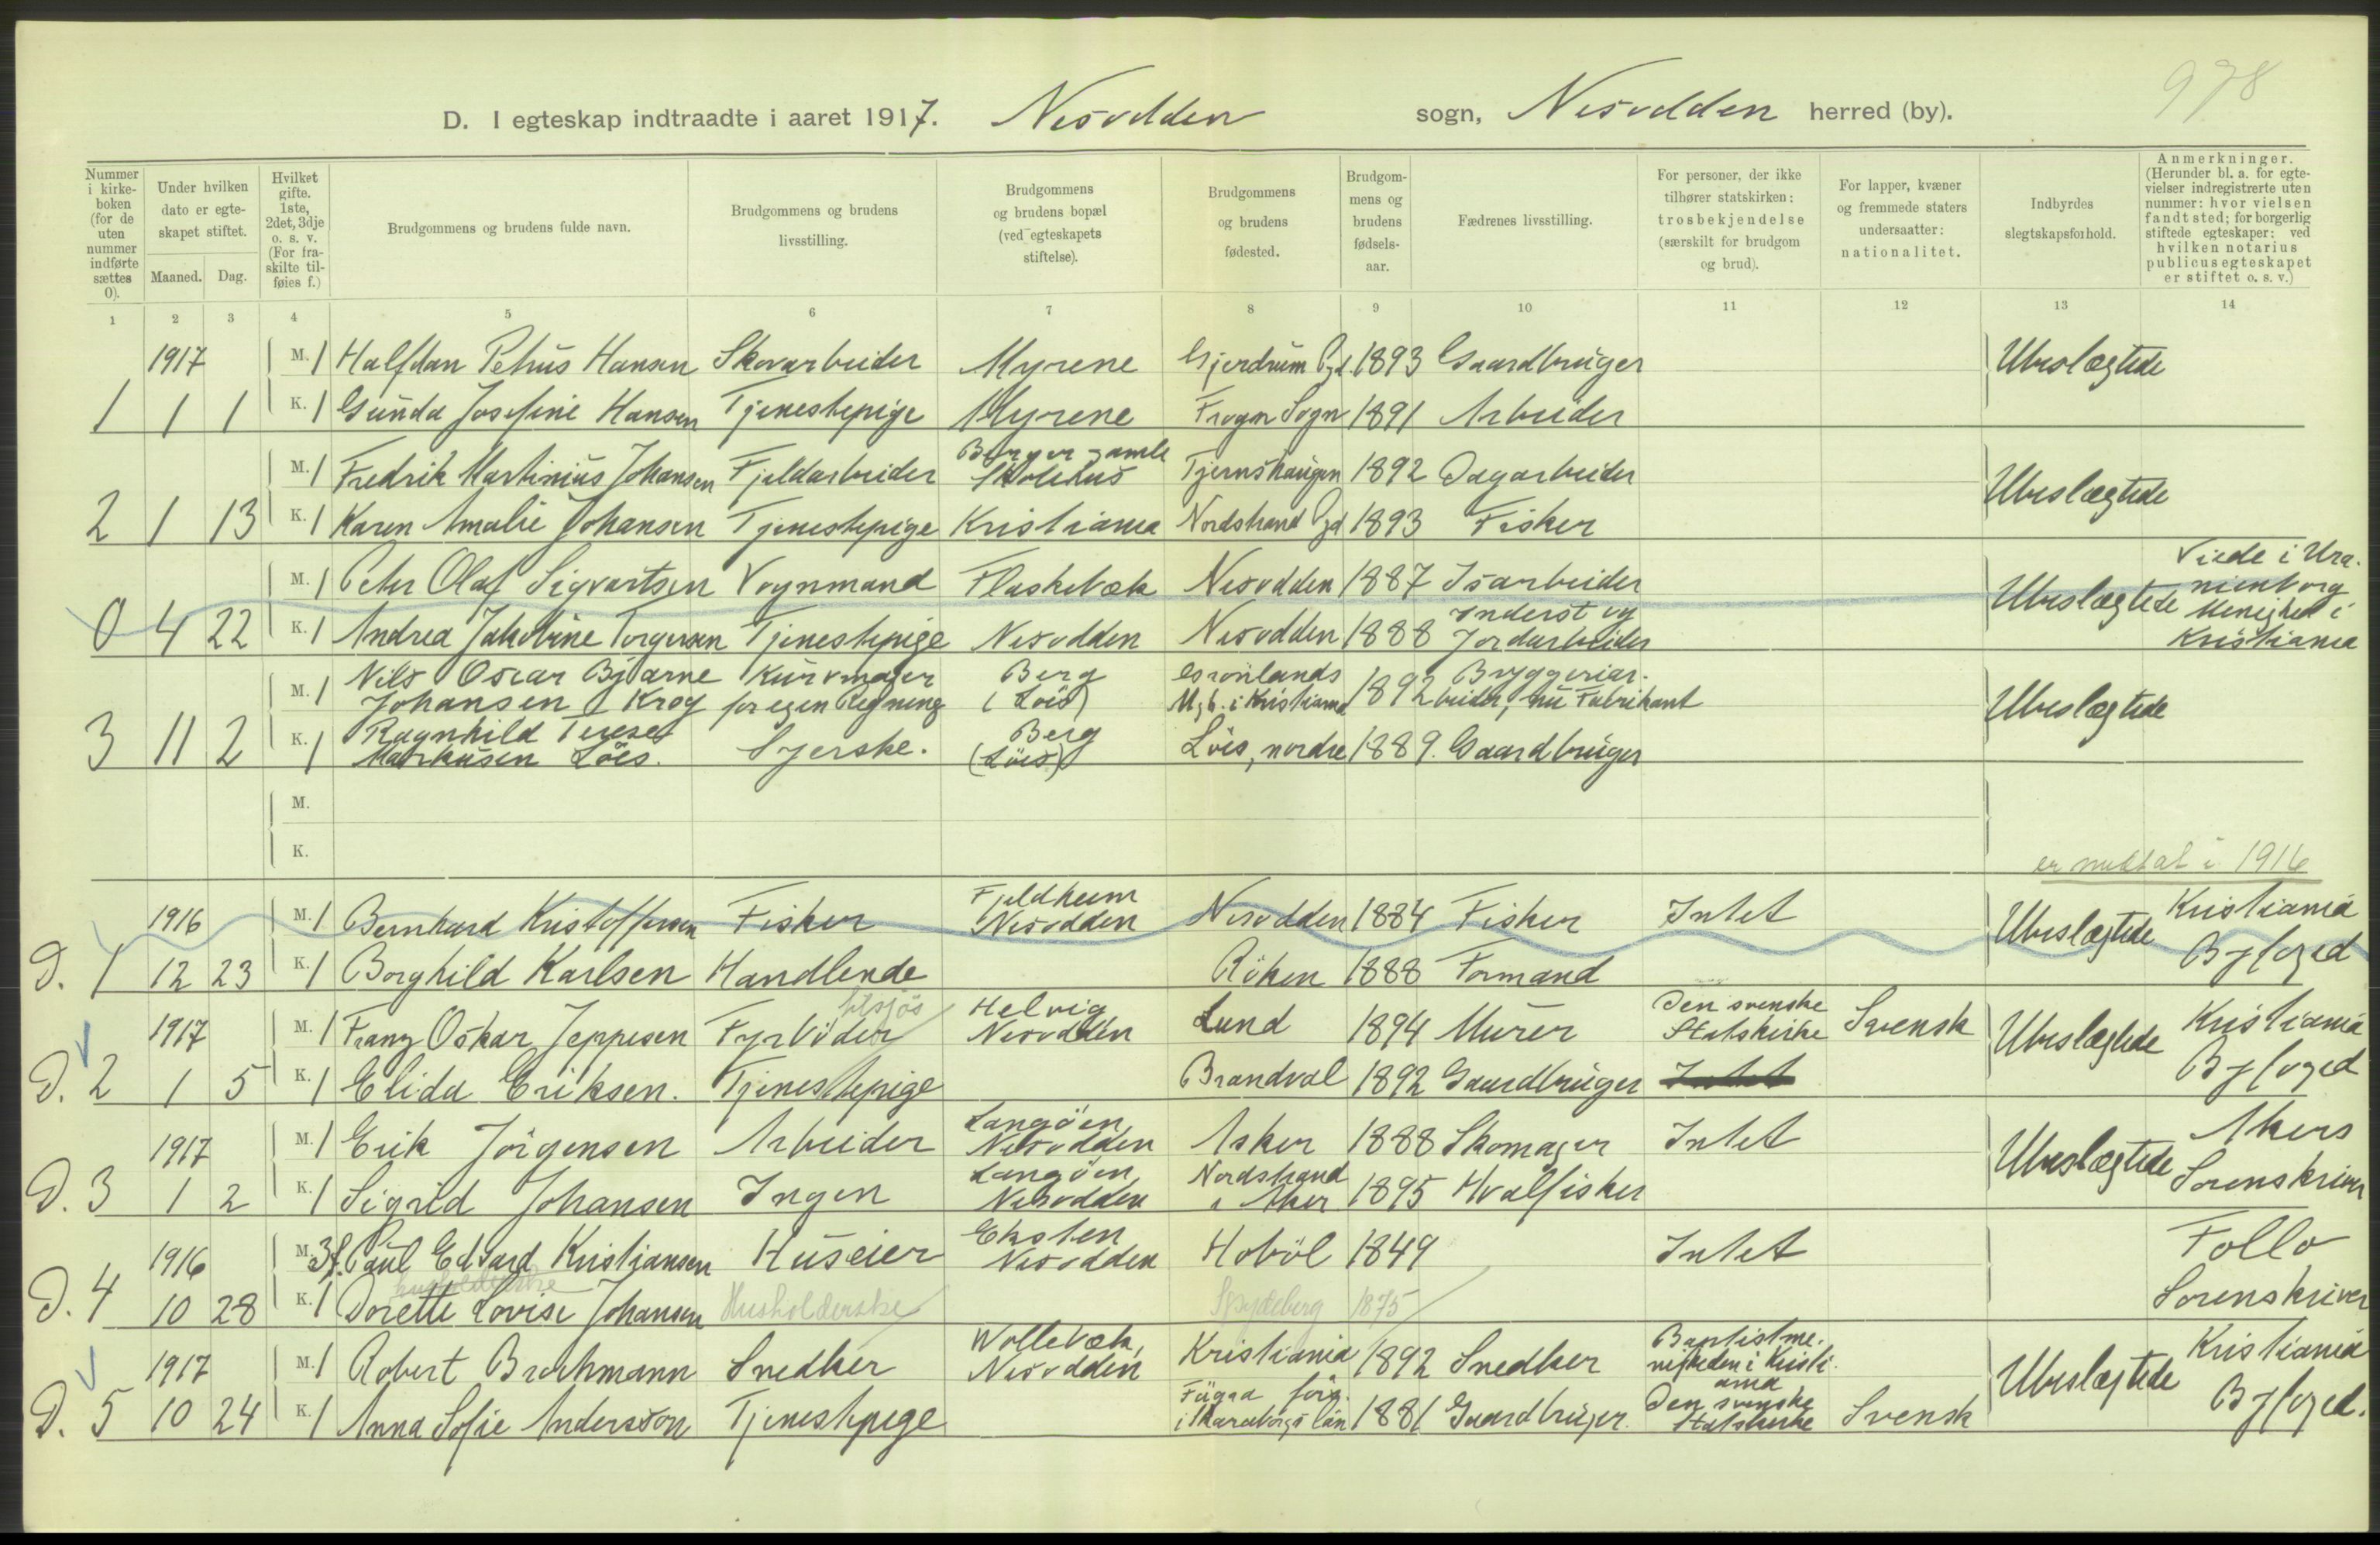 978
D. I egteskap indtraadte i aaret 1917. Nesodden sogn, Nesodden herred (by).
Nummer i kirke-boken (for de uten nummer indførte sættes 0).
Under hvilken dato er egte-skapet stiftet.
Maaned. Dag.
Hvilket gifte. 1ste, 2det, 3dje o. s. v. (For fra-skilte til-føies f.)
Brudgommens og brudens fulde navn.
Brudgommens og brudens livsstilling.
Brudgommens og brudens bopæl (ved egteskapets stiftelse).
Brudgommens og brudens fødested.
Brudgom-mens og brudens fødsels-aar.
Fædrenes livsstilling.
For personer, der ikke tilhører statskirken: trosbekjendelse (særskilt for brudgom og brud).
For lapper, kvæner og fremmede staters undersaatter: nationalitet.
Indbyrdes slegtskapsforhold.
Anmerkninger. (Herunder bl. a. for egte-vielser indregistrerte uten nummer: hvor vielsen fandt sted; for borgerlig stiftede egteskaper: ved hvilken notarius publicus egteskapet er stiftet o. s. v.)
1 2 3 4 5 6 7 8 9 10 11 12 13 14
1917 M. 1 Halfdan Petrus Hansen Skovarbeider Myrene Gjerdrum Pgd. 1893 Gaardbruger Ubeslægtede
1 1 1 K. 1 Gunda Josefine Hansen Tjenestepige Myrene Frogn Sogn 1891 Arbeider
M. 1 Fredrik Martinius Johansen Fjeldarbeider Berger gamle Skolehus Tjernshaugen 1892 Dagarbeider Ubeslægtede
2 1 13 K. 1 Karen Amalie Johansen Tjenestepige Kristiania Nordstrand Pgd 1893 Fisker
M. 1 Peter Olaf Sigvartsen Vognmand Flaskebæk Nesodden 1887 Isarbeider Ubeslægtede Viede i Ura-nienborg Menighed i Kristiania
0 4 22 K. 1 Andrea Jakobine Torgersen Tjenestepige Nesodden Nesodden 1888 Inderst og Jordarbeider
M. 1 Nils Oscar Bjarne Johansen Krog Kurvmager for egen Regning Berg (Löis) Grønlands Mgh. i Kristiania 1892 Bryggeriar-beider, nu Fabrikant Ubeslægtede
3 11 2 K. 1 Ragnhild Terese Markusen Löis. Syerske. Berg (Löis) Löis, nordre 1889. Gaardbruger
M.
K.
er medtat i 1916
1916 M. 1 Bernhard Kristoffersen Fisker Fjeldheim Nesodden Nesodden 1884 Fisker Intet Ubeslægtede Kristiania Byfoged
D. 1 12 23 K. 1 Borghild Karlsen Handlende Röken 1888 Formand
1917 M. 1 Franz Oskar Jeppesen Fyrböder tilsjøs Helvig Nesodden Lund 1894 Murer Den svenske Statskirke Svensk Ubeslægtede Kristiania Byfoged
D. 2 1 5 K. 1 Elida Eriksen. Tjenestepige Brandval 1892 Gaardbruger Intet
1917 M. 1 Erik Jörgensen Arbeider Langöen Nesodden Asker 1888 Skomager Intet Ubeslægtede Akers Sorenskriver
D. 3 1 2 K. 1 Sigrid Johansen Ingen Langöen Nesodden Nordstrand i Aker 1895 Hvalfisker
1916 M. 3f. Paul Edvard Kristiansen Huseier Eksten Nesodden Hoböl 1849 Intet Follo Sorenskriver
D. 4 10 28 K. 1 husholderske Dorette Lovise Johansen Husholderske Spydeberg 1875
1917 M. 1 Robert Brochmann Snedker Wollebæk, Nesodden Kristiania 1892 Snedker Baptistme-nigheden i Kristi-ania Ubeslægtede Kristiania Byfoged.
D. 5 10 24 K. 1 Anna Sofie Andersson Tjenestepige Fägra förs. i Skaraborgs län 1881 Gaardbruger. Den svenske Statskirke Svensk